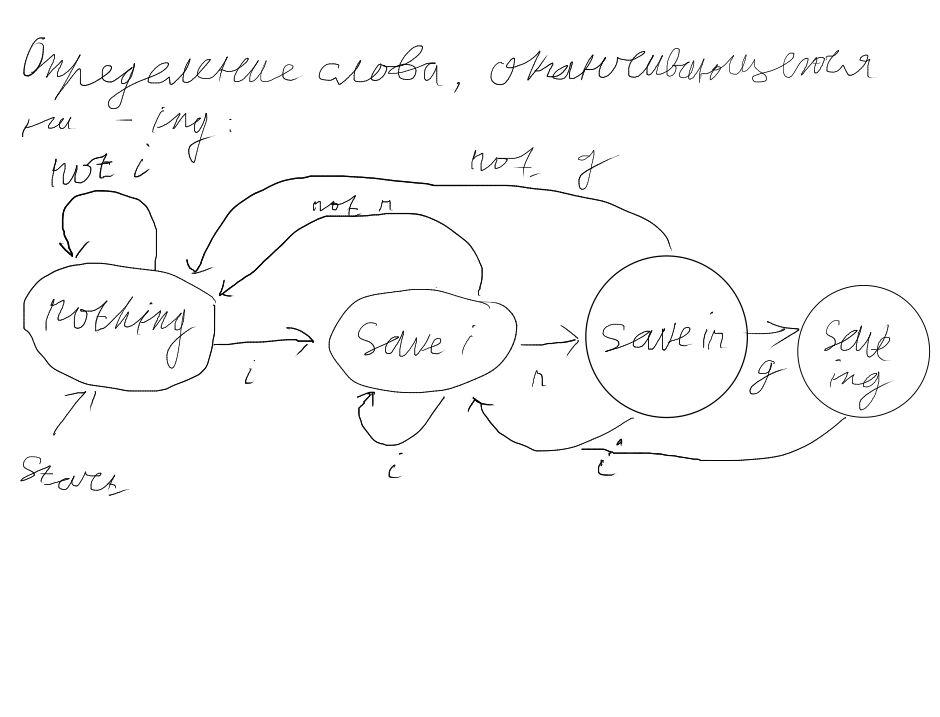 Определение слова, оканчивающегося
на - ing:
not i
not g
not n
nothing
save i
save in
save
ing
i
n
g
i
i
Start